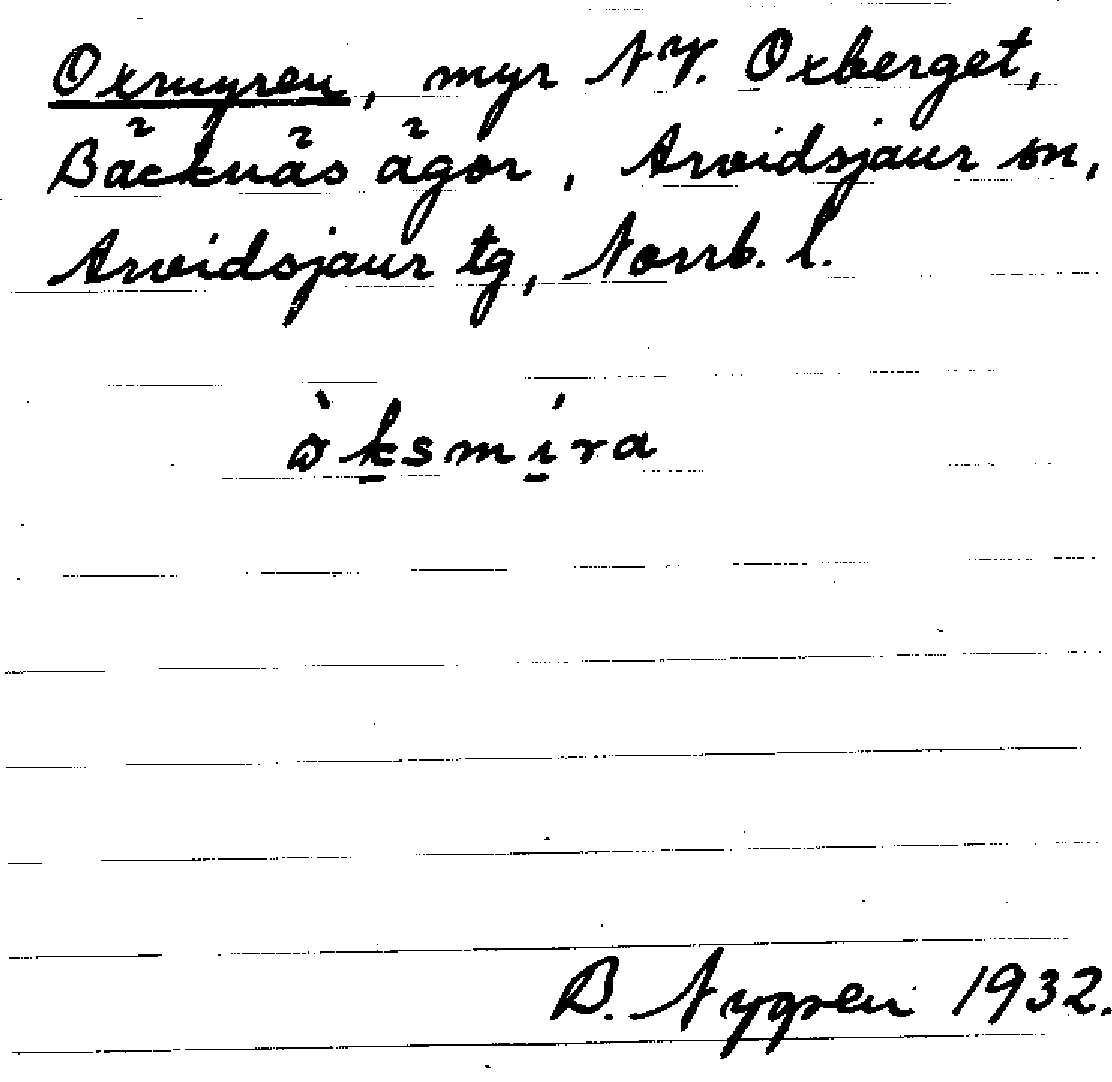 Oxmyren, myr NV. Oxberget,
Bäcknäs ägor, Arvidsjaur sn,
Arvidsjaur tg, Norrb. l.
òksmíra
B. Nygren 1932.